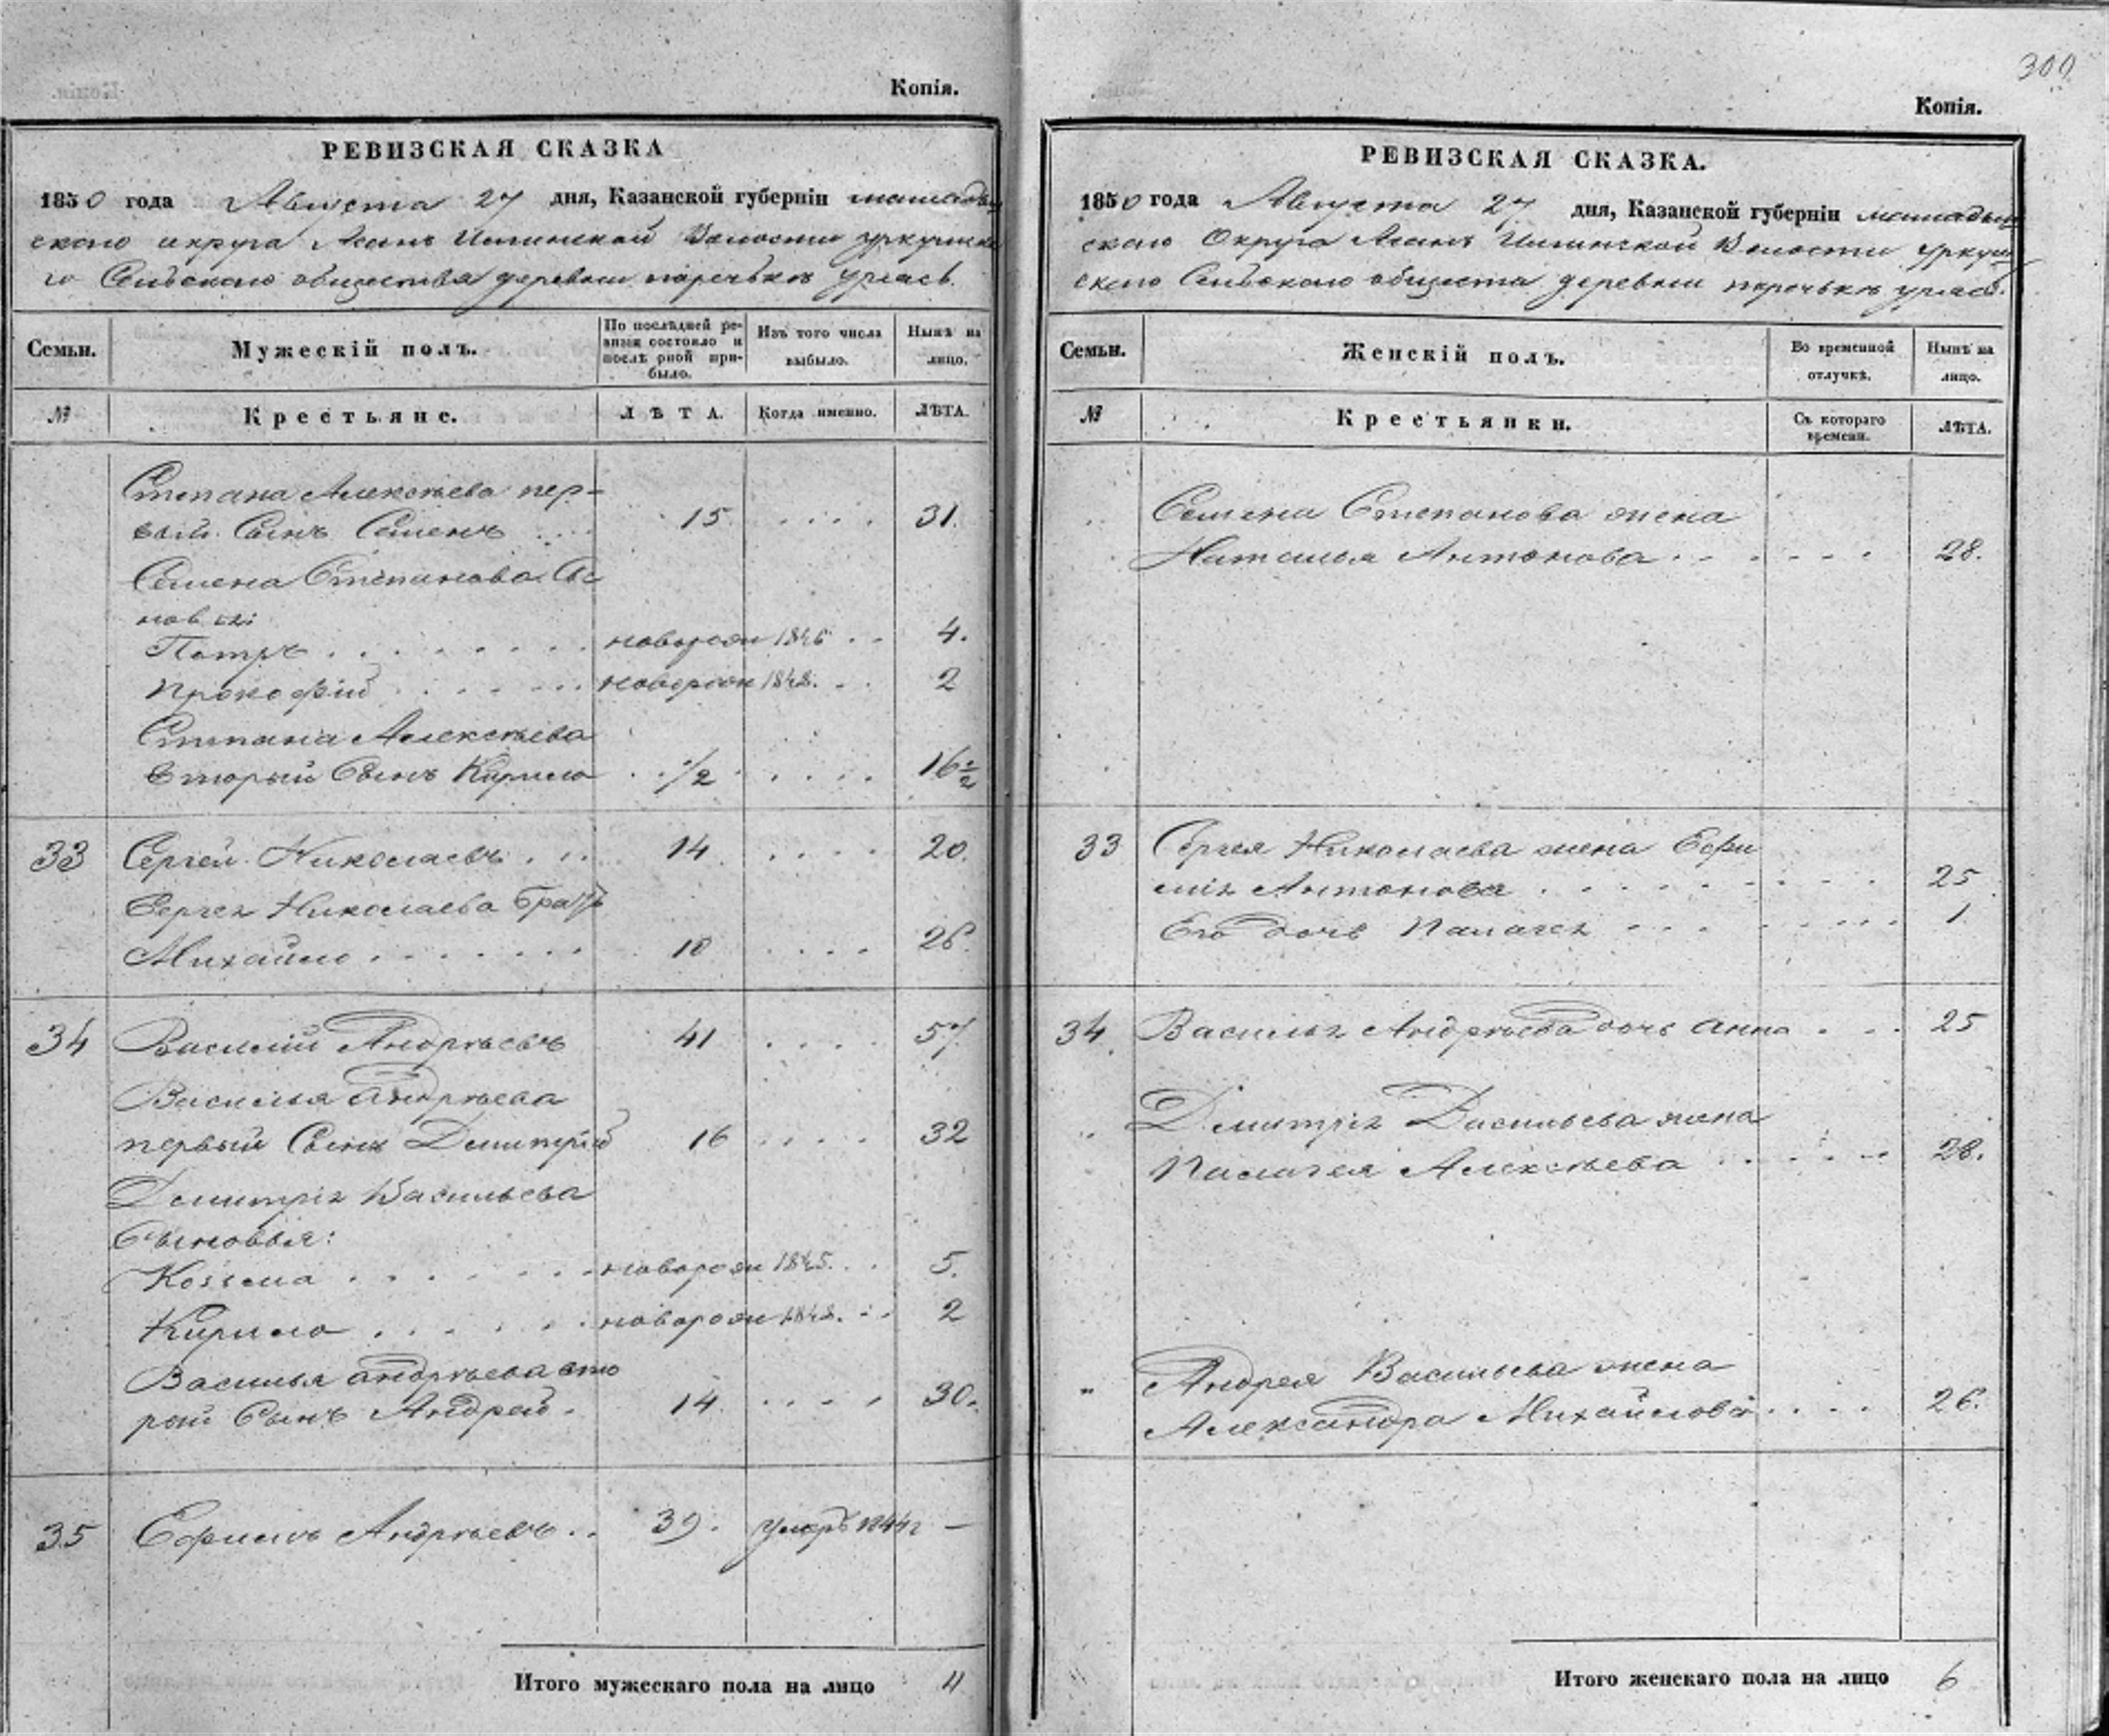 Копія.
РЕВИЗСКАЯ СКАЗКА
1850 года Августа 27 дня, Казанской губерніи мамадыш
скаго округа Волости уркушска
го Сельскаго общества деревни поречькъ
Семьи. Мужескій полъ. По послѣдней ревизіи состояло и послѣ оной прибыло. Изъ того числа выбыло. Нынѣ на лицо.
№ Крестьяне. ЛѢТА. Когда именно. ЛѢТА.
Степана Алексѣева пер-
вый Сынъ Семенъ 15 31.
Семена Степанова Сы
новья:
Петръ новорож 1846 4.
Прокофій новорож 1848. 2
Степана Алексѣева
вторый Сынъ Кирило 1/2 16 1/2
33 Сергей Николаевъ 14 20.
Сергея Николаева братъ
Михайло 10 26
34 Василій Андрѣевъ 41 57.
Василья Андрѣева
первый Сынъ Дмитрій 16 32
Дмитрія Васильева
Сыновья:
Козьма новорож 1845. 5.
Кирило новорож 1848. 2
Василья андрѣева вто
рой Сынъ Андрей 14 30.
35 Ефимъ Андрѣевъ 39. умеръ 1844г —
Итого мужескаго пола на лицо 11
300.
Копія.
РЕВИЗСКАЯ СКАЗКА.
1850 года Августа 27 дня, Казанской губерніи мамадыш
скаго Округа Волости уркуш
скаго Сельскаго общества деревни поречькъ
Семьи. Женскій полъ. Во временной отлучкѣ. Нынѣ на лицо.
№ Крестьянки. Съ котораго времени. ЛѢТА.
Семена Степанова жена
Наталья Антонова 28.
33 Сергея Николаева жена Ефи
мія Антонова 25
Его дочь Палагея 1
34. Василья Андрѣева дочь анна 25
" Дмитрія Васильева жена
Палагея Алексѣева 28.
" Андрея Васильева жена
Александра Михайлова 26.
Итого женскаго пола на лицо 6